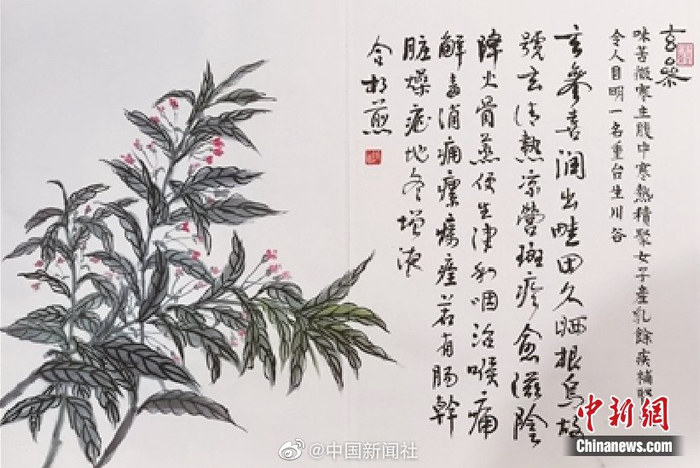 玄參
味苦微寒主腹中寒熱積聚女子產乳餘疾補
令人目明一名重台生川谷
玄參喜潤出畦田久晒根烏故
號玄清熱凉營斑疹愈滋陰
降火骨蒸便生津利咽治喉痛
解毒消痈瘰疬痊若有腸幹
脏燥症地冬增液
合相煎
中新网
Chinanews.com
@中国新闻社